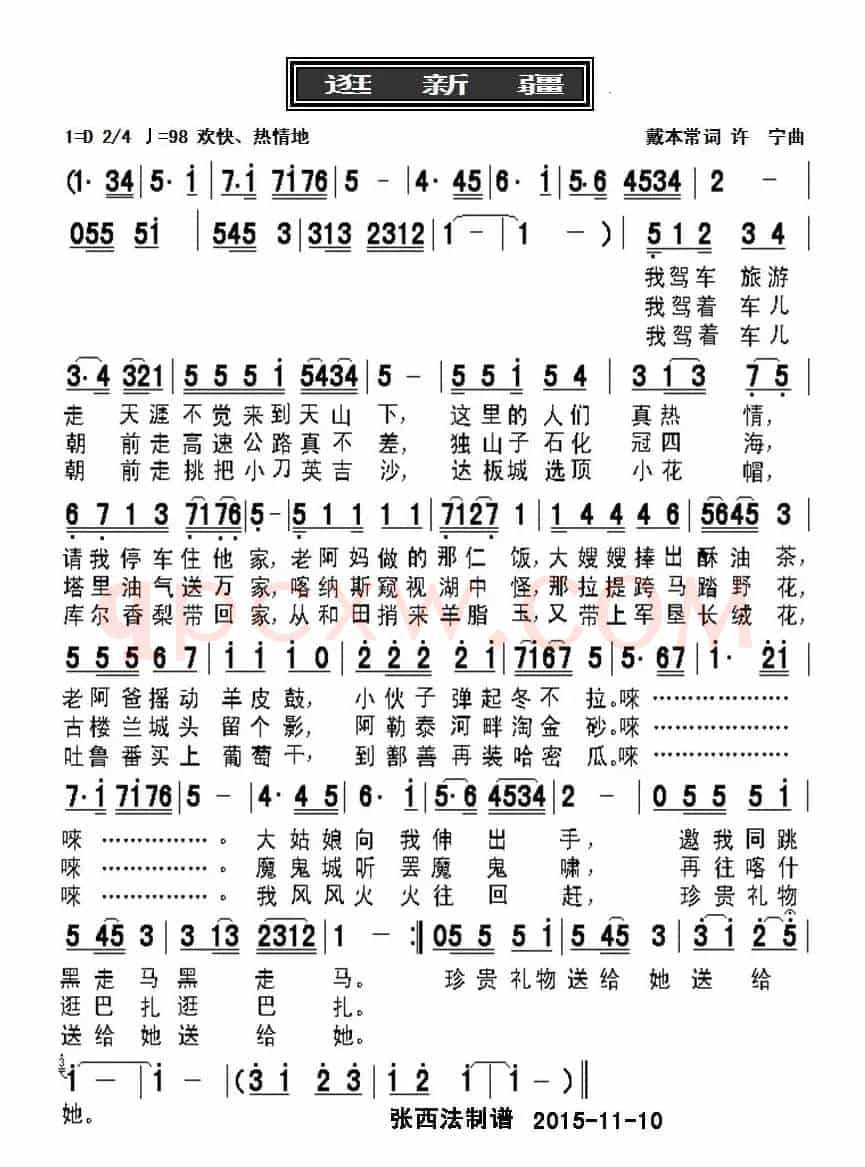 逛 新 疆
1=D 2/4 ♩=98 欢快、热情地 戴本常词 许 宁曲
(1· 34 | 5· i | 7·i 7i76 | 5 - | 4· 45 | 6· i | 5·6 4534 | 2 - |
055 5i | 545 3 | 313 2312 | 1 - | 1 - ) | 5 1 2 3 4 |
我驾车 旅游
我驾着 车儿
我驾着 车儿
3·4 321 | 5 5 5 i 5434 | 5 - | 5 5 i 5 4 | 3 1 3 7 5 |
走 天涯不觉来到天山 下, 这里的 人们 真热 情,
朝 前走高速公路真不 差, 独山子石化 冠四 海,
朝 前走挑把小刀英吉 沙, 达板城选顶 小花 帽,
6 7 1 3 7176 | 5 - | 5 1 1 1 1 | 7127 1 | 1 4 4 4 6 | 5645 3 |
请我停车住他家,老阿妈做的那仁 饭,大嫂嫂捧出酥油茶,
塔里油气送万家,喀纳斯窥视湖中 怪,那拉提跨马踏野花,
库尔香梨带回家,从和田捎来羊脂 玉,又带上军垦长绒花,
qpcxw.com
5 5 5 6 7 | i i i 0 | 2 2 2 2 i | 7i67 5 | 5· 67 | i· 2i |
老阿爸摇动 羊皮鼓, 小伙子弹起冬不 拉。唻 ……………
古楼兰城头 留个影, 阿勒泰河畔淘金 砂。唻 ……………
吐鲁番买上 葡萄干, 到鄯善再装哈密 瓜。唻 ……………
7·i 7i76 | 5 - | 4· 4 5 | 6· i | 5·6 4534 | 2 - | 0 5 5 5 i |
唻 ……………。 大姑娘向我伸 出 手, 邀我同跳
唻 ……………。 魔鬼城听罢魔 鬼 啸, 再往喀什
唻 ……………。 我风风火火往 回 赶, 珍贵礼物
5 45 3 | 3 13 2312 | 1 - :‖ 05 5 5 i | 5 45 3 | 3 i 2 5 |
黑走马黑 走 马。 珍贵礼物送给她送给
逛巴扎逛 巴 扎。
送给她送 给 她。
i - | i - | (3 i 2 3 | i 2 i | i - ) ‖
她。 张西法制谱 2015-11-10